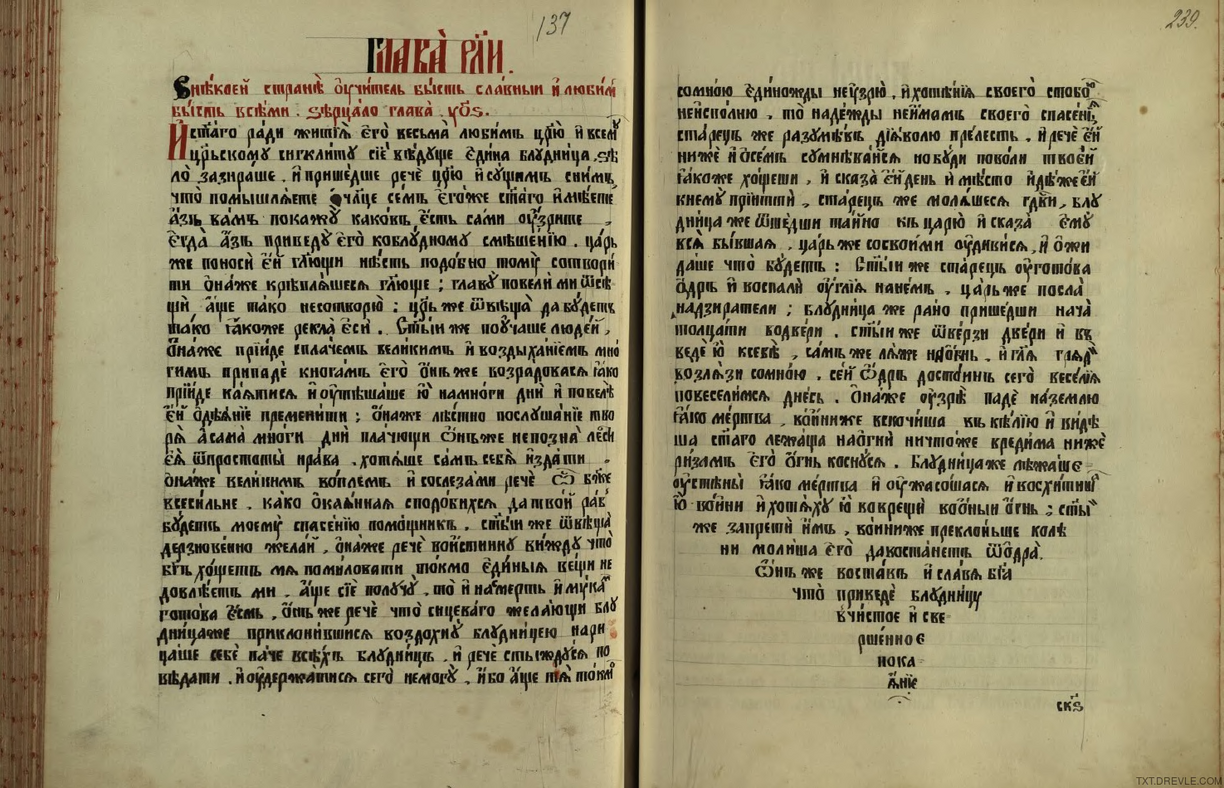 137
Глава рли.
Внѣкоей странѣ оучитель бысть славныи и любим
бысть всѣми . зѣрцало глава уоѕ.
И стаго ради житїѧ его весьма любимъ црю и всемꙋ
црьскомꙋ сигклитꙋ сїе вѣдꙋще едина блудница зѣ
ло зазираше . и пришедше рече црю и сꙋщимъ снимъ
что помышлѧете оче семъ егоже стаго имѣете
азъ вамъ покажꙋ каковъ есть сами оузрите
Егда азъ приведꙋ его коблꙋдномꙋ смѣшенїю . царь
же поноси ей глющи нѣсть подобно томꙋ сотвори
ти онаже крѣплѧшесѧ глюще ; главꙋ повели ми ѿсѣ
щи аще тако несотворю ; црь же ѿвѣща да бꙋдетъ
тако ꙗкоже рекла еси . Стыи же поꙋчаше людей ,
Онаже прїиде сплачемъ великимъ и воздыханїемъ мно
гимъ припаде кногамъ его онъ же возрадовасѧ ꙗко
прїиде каѧтисѧ и оутѣшаше ю намноги дни и повелѣ
ей одеѧнїе пременити ; онаже лѣстно послꙋшанїе тво
рѧ асама многи дни плачющи онъ же непозна лести
еѧ ѿпростоты нрава , хотѧше самъ себѧ издати
онаже великимъ воплемъ и сослезами рече ѽ бже
всесильне . како окаѧнная сподобихсѧ да твой рабъ
бꙋдетъ моемꙋ спасенїю помощникъ . стыи же ѿвѣща
дерзновенно желай , онаже рече воистиннꙋ виждꙋ что
бгъ хощетъ мѧ помиловати токмо единыѧ вещи не
довлѣетъ ми . аще сїе полꙋчꙋ , то и насмерть и мꙋка
готова есмь , онъ же рече что сицеваго желающи блꙋ
дницаже приклонившисѧ воздохнꙋ блꙋдницею нари
цаше себе паче всѣхъ блꙋдницъ , и рече стыждꙋсѧ по
вѣдати . и оудержатисѧ сего немогꙋ , ибо аще
239.
сомною единожды неꙋзрю , и хотѣнїѧ своего стобо
неисполню , то надежды неимамъ своего спасенїѧ
старецъ же разꙋмѣвъ дїѧволю прелесть , и рече ей
ниже и осемъ сꙋмнѣваисѧ но бꙋди поволи твоей
ꙗкоже хощеши , и сказа ей день и мѣсто идѣже ей
кнемꙋ прїитти , старецъ же молѧшесѧ гдви , блꙋ
дница же ѿшедши тайно къ царю и сказа емꙋ
всѧ бывшая , царь же сосвоими оудивисѧ , и ожи
даше что бꙋдетъ : Стыи же старецъ оуготова
одръ и воспали оуглїѧ нанемъ , царь же посла
надзиратели ; блꙋдница же рано пришедши нача
толцати водвери . стыи же ѿверзи двери и въ
веде ю ксебѣ , самъ же лѧже наогнь , и глѧ грѧди
возлѧзи сомною . сей ѽдръ достоинъ сего веселїѧ
повеселимсѧ днесь . Онаже оузрѣ паде наземлю
ꙗко мертва , воиниже вскочиша въ кѣлїю и видѣ
ша стаго лежаща наогни ничтоже вредима ниже
ризамъ его огнь коснꙋсѧ . Блꙋдницаже лѣжаше
оустѣны ꙗко мертва и оужасошасѧ и восхитиша
ю воини и хотѧхꙋ ю воврещи воѻныи огнь ; стыи
же запрети имъ , воиниже преклоньше колѣ
ни молиша его давостанетъ ѿодра .
Онъ же воставъ и славѧ бга
что приведе блꙋдницꙋ
вчистое и све
ршенное
пока
ѧнїе
скѕ
TXT.DREVLE.COM